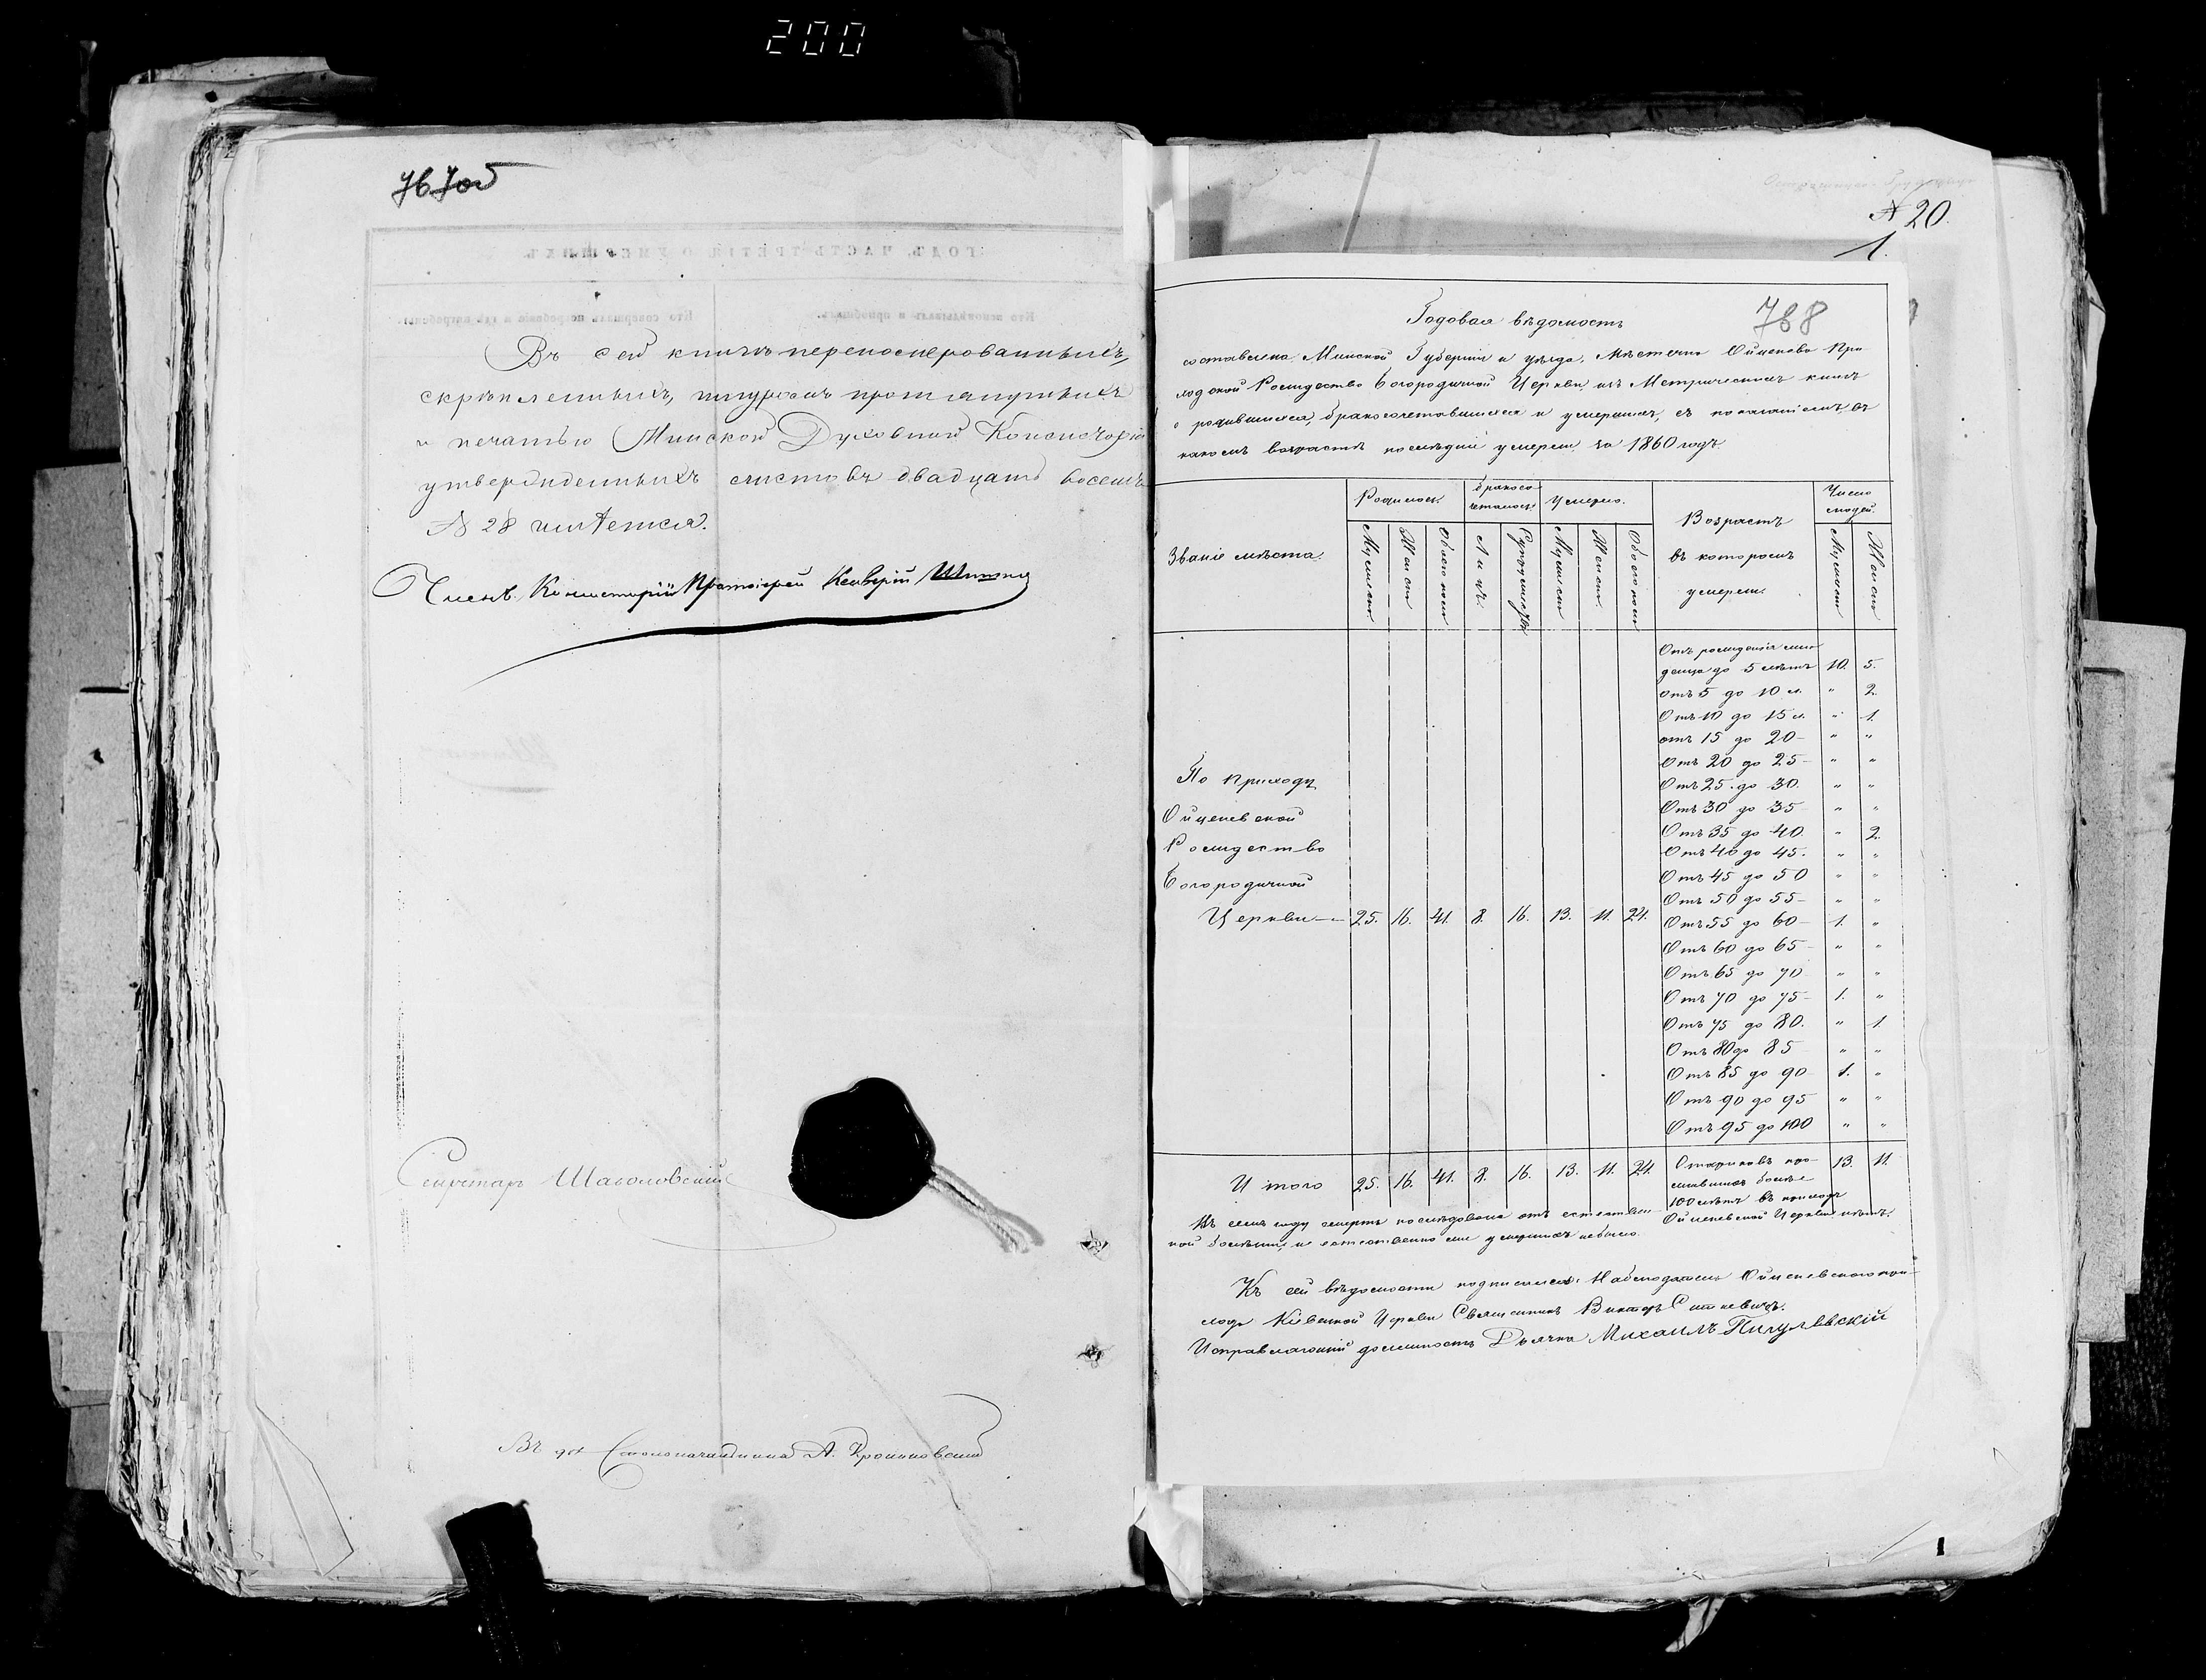 200
767об
Въ сей книгѣ перенумерованныхъ,
скрѣпленныхъ, шнуромъ протянутыхъ
и печатью Минской Духовной Консисторіи
утвержденныхъ листовъ двадцать восемь
№ 28 имѣется.
Членъ Консисторіи Протоіерей
Секретарь
Въ дол Столоначальника А.
№ 20.
1.
768
Годовая вѣдомость
составлена Минской Губерніи и уѣзда, мѣстечка Ойцеково При
ходской Рождество Богородичной Церкви изъ Метрическихъ книгъ
о родившихся, бракосочетавшихся и умершихъ, съ показаніемъ, въ
какомъ возрастѣ послѣдніе умерли за 1860 годъ.
Званіе мѣста.
Родилось.
бракосо-
четалось.
Умерло.
Возрастъ
въ которомъ
умерли.
Число
людей.
Мужеска
Женск
Обоего пола
Лицъ.
Супружествъ
Мужеска
Женск.
Обоего пола
Мужеска
Женск
Отъ рожденія мла
денца до 5 лѣтъ 10. 5.
отъ 5 до 10 л. " 2.
Отъ 10 до 15 л. " 1.
отъ 15 до 20– " "
Отъ 20 до 25– " "
Отъ 25 до 30. " "
Отъ 30 до 35 " "
Отъ 35 до 40. " 2.
Отъ 40 до 45. " "
Отъ 45 до 50 " "
Отъ 50 до 55– " "
Отъ 55 до 60– 1. "
Отъ 60 до 65– " "
Отъ 65 до 70 " "
Отъ 70 до 75– 1. "
Отъ 75 до 80. " 1.
Отъ 80 до 85 " "
Отъ 85 до 90 1. "
Отъ 90 до 95 " "
Отъ 95 до 100 " "
По приходу
Рождество
Богородичной
Церкви — 25. 16. 41. 8. 16. 13. 11. 24.
Итого 25. 16. 41. 8. 16. 13. 11. 24.
Стариковъ про- 13. 11.
жившихъ болѣе
100 лѣтъ въ приходѣ
Церкви нѣтъ.
Въ семъ году смерть послѣдовала отъ естествен-
ной болѣзни, неестественно же умершихъ небыло.
Къ сей вѣдомости подписался: Наблюдатель при-
хода Церкви Священникъ Викторъ Ситкевичъ.
Исправляющій должность Дьячка Михаилъ Пигулевскій